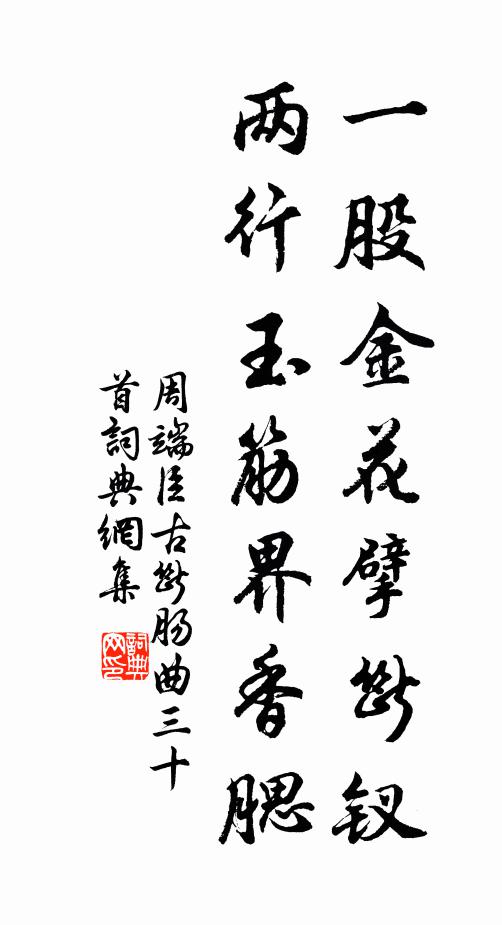 一股金花擘断钗
两行玉筋界香腮
周端臣古断肠曲三十
首詞典網集
詞典网印